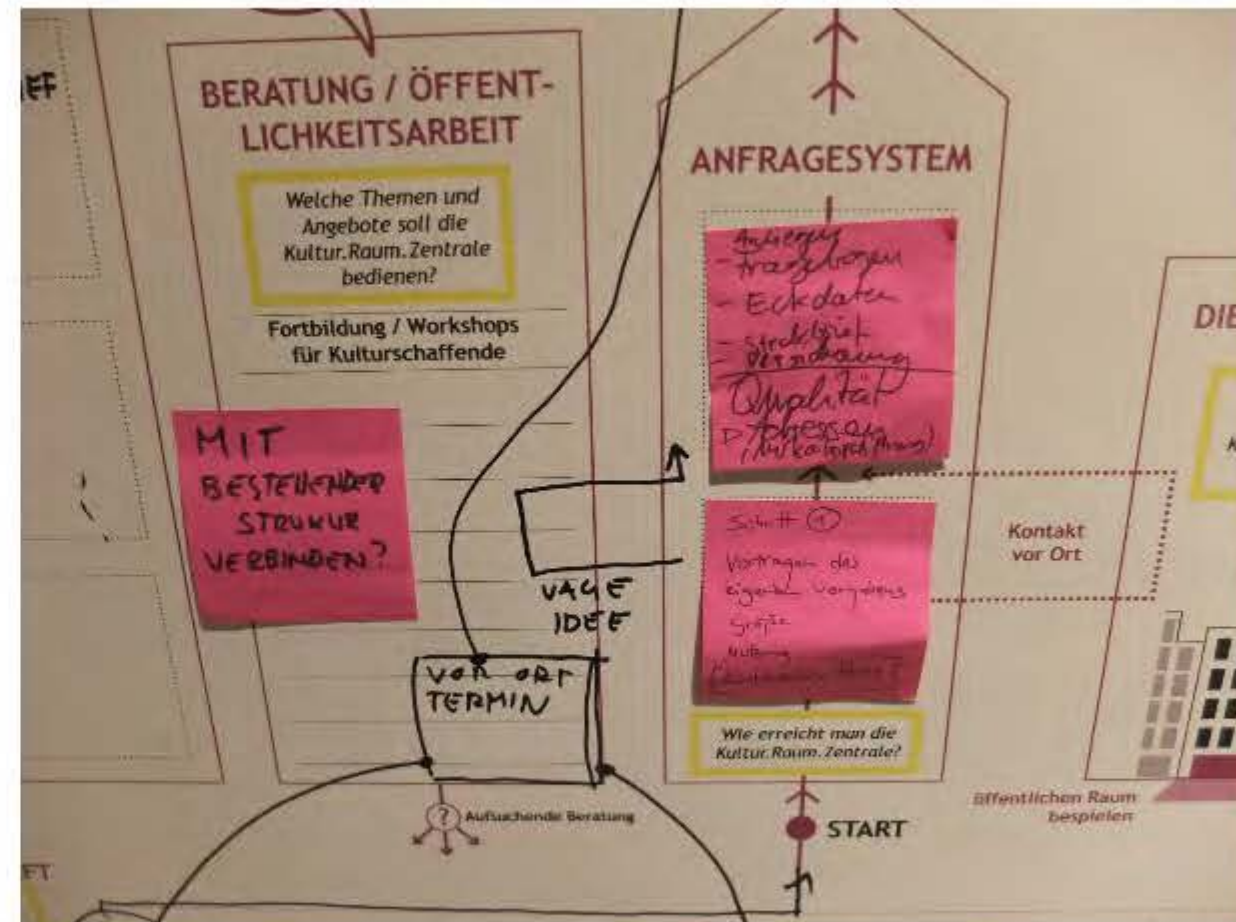 EF
BERATUNG / ÖFFENT-
LICHKEITSARBEIT
Welche Themen und
Angebote soll die
Kultur.Raum.Zentrale
bedienen?
Fortbildung / Workshops
für Kulturschaffende
MIT
BESTEHENDER
STRUKUR
VERBINDEN?
VAGE
IDEE
VON ORT
TERMIN
? Aufsuchende Beratung
ANFRAGESYSTEM
- Fragebogen
- Eckdaten
- Steckbrief
Qualität
Schritt 1
Vortragen des
eigenen
Größe
Nutzung
Wie erreicht man die
Kultur.Raum.Zentrale?
START
Kontakt
vor Ort
DIE
K
öffentlichen Raum
bespielen
FT